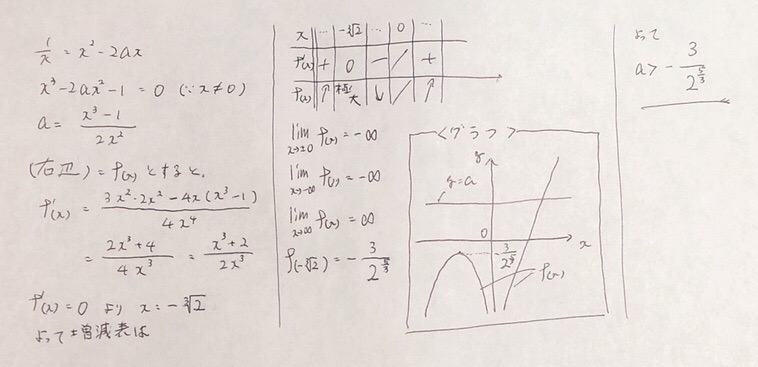 1/x = x² - 2ax
x³ - 2ax² - 1 = 0 (∵ x ≠ 0)
a = (x³ - 1)/(2x²)
(右辺) = f(x) とすると、
f'(x) = (3x²・2x² - 4x(x³ - 1))/(4x⁴)
= (2x³ + 4)/(4x³) = (x³ + 2)/(2x³)
f'(x) = 0 より x = -∛2
よって増減表は
x … -∛2 … 0 …
f'(x) + 0 - / +
f(x) ↑ 極大 ↓ / ↑
lim x→±0 f(x) = -∞
lim x→-∞ f(x) = -∞
lim x→∞ f(x) = ∞
f(-∛2) = - 3/2^(5/3)
<グラフ>
y
y=a
0
x
3/2^(5/3)
f(x)
よって
a > - 3/2^(5/3)